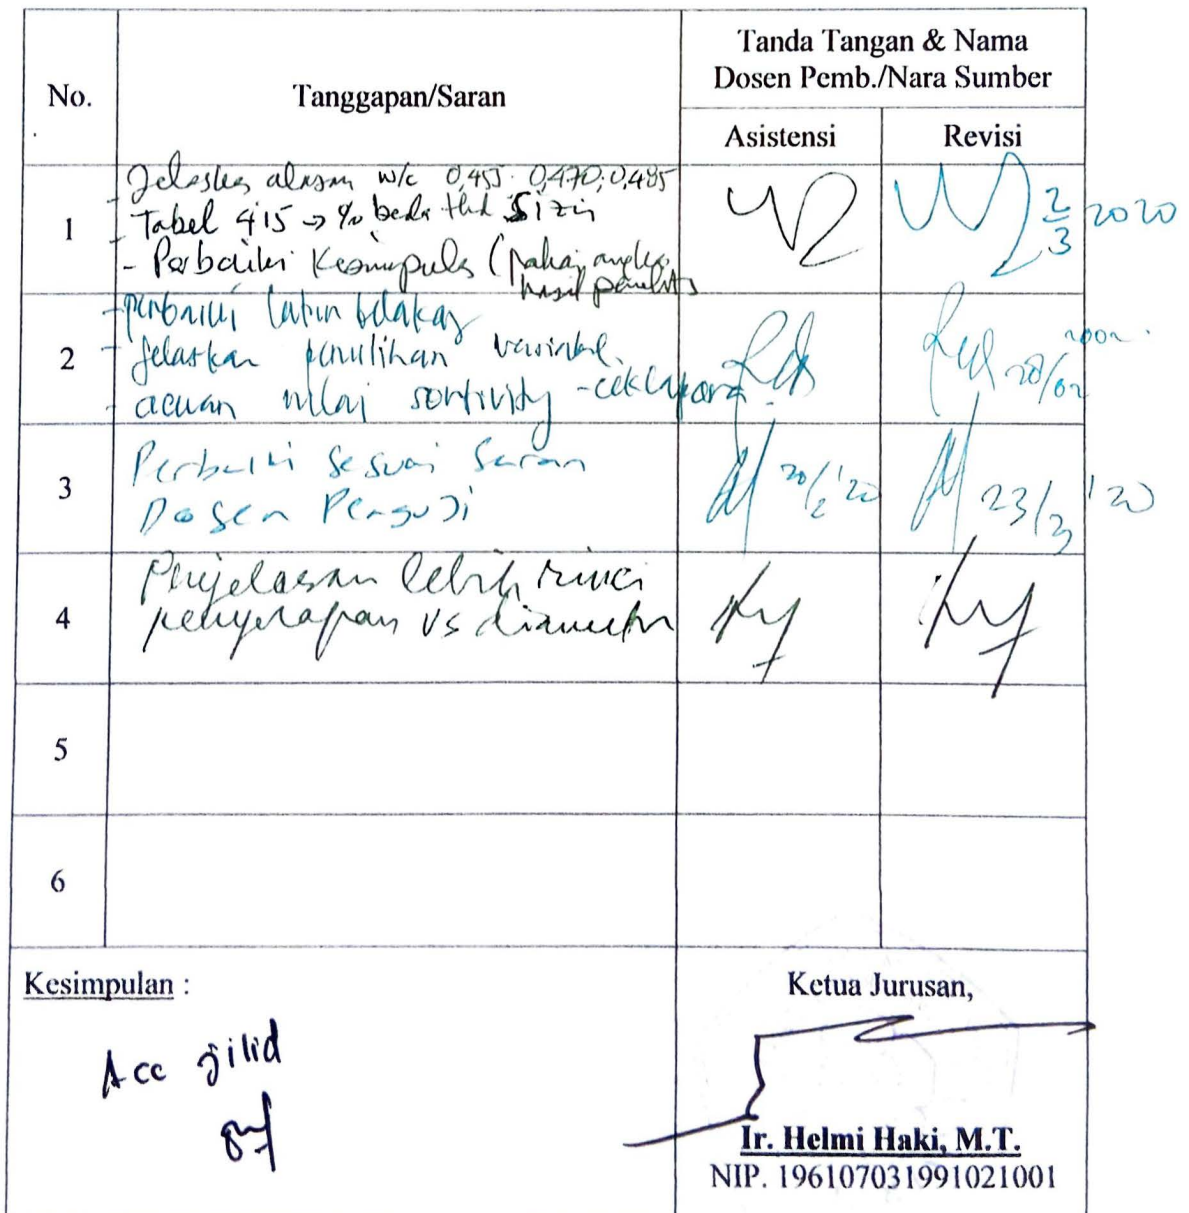 No.
Tanggapan/Saran
Tanda Tangan & Nama
Dosen Pemb./Nara Sumber
Asistensi
Revisi
1
- Jelaskan alasan w/c 0,455; 0,470; 0,485
- Tabel 4.15 → % beda thd
- Perbaiki Kesimpulan (pakai angka
hasil penelitian
2/3 2020
2
- perbaiki latar belakang
- jelaskan pemilihan variabel
- acuan nilai sortivity - cek
28/02
3
Perbaiki Sesuai Saran
Dosen Penguji
20/2 '20
23/3 '20
4
Penjelasan lebih rinci
penyerapan vs diameter
5
6
Kesimpulan :
Acc jilid
Ketua Jurusan,
Ir. Helmi Haki, M.T.
NIP. 196107031991021001